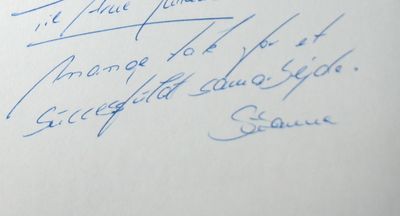 Til
Mange tak for et
succesfuldt samarbejde.
Susanne